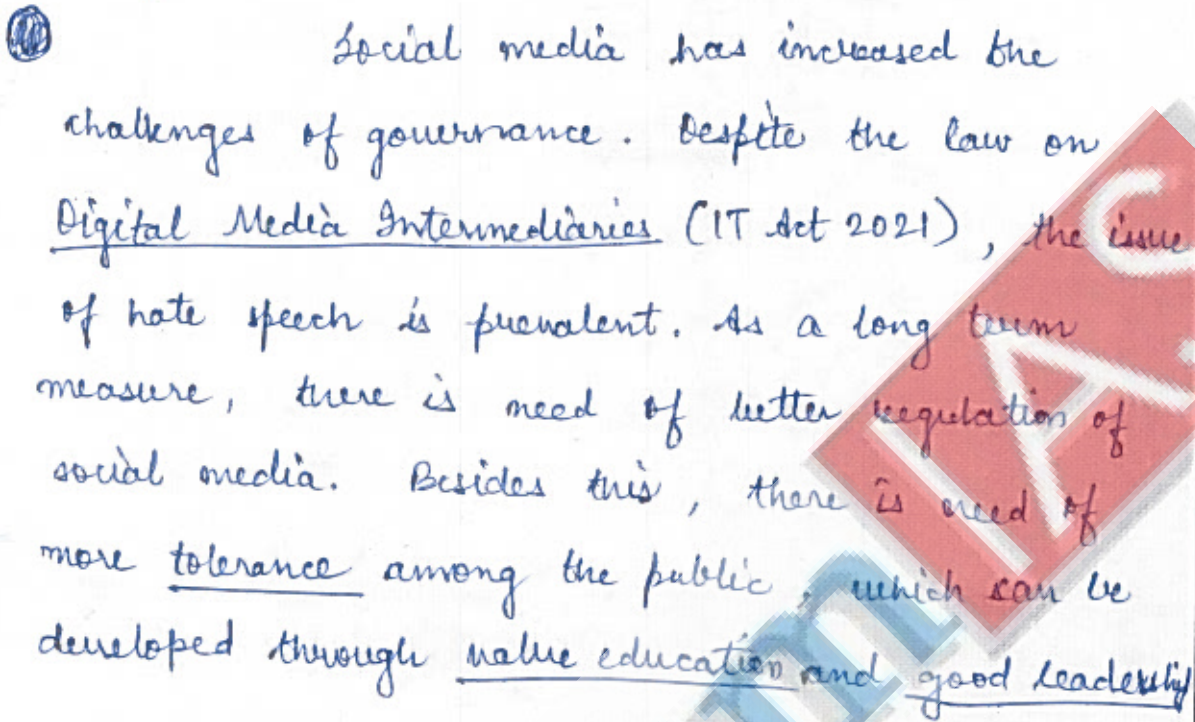 Social media has increased the
challenges of governance. Despite the law on
Digital Media Intermediaries (IT Act 2021), the issue
of hate speech is prevalent. As a long term
measure, there is need of better regulation of
social media. Besides this, there is need of
more tolerance among the public, which can be
developed through value education and good leadership